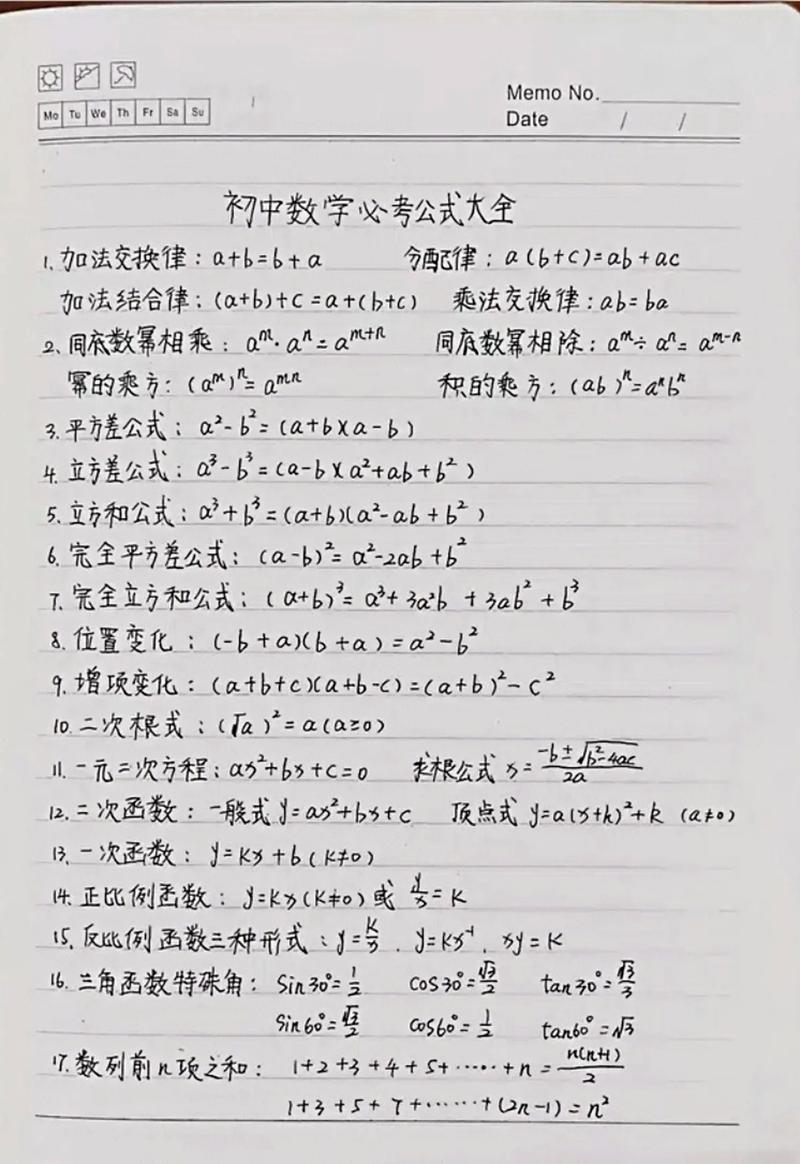 Mo Tu We Th Fr Sa Su
Memo No.
Date / /
初中数学必考公式大全
1. 加法交换律：a+b=b+a 分配律：a(b+c)=ab+ac
加法结合律：(a+b)+c=a+(b+c) 乘法交换律：ab=ba
2、同底数幂相乘：aᵐ·aⁿ=aᵐ⁺ⁿ 同底数幂相除：aᵐ÷aⁿ=aᵐ⁻ⁿ
幂的乘方：(aᵐ)ⁿ=aᵐⁿ 积的乘方：(ab)ⁿ=aⁿbⁿ
3.平方差公式：a²-b²=(a+b)(a-b)
4.立方差公式：a³-b³=(a-b)(a²+ab+b²)
5.立方和公式：a³+b³=(a+b)(a²-ab+b²)
6.完全平方差公式：(a-b)²=a²-2ab+b²
7.完全立方和公式：(a+b)³=a³+3a²b+3ab²+b³
8.位置变化：(-b+a)(b+a)=a²-b²
9.增项变化：(a+b+c)(a+b-c)=(a+b)²-c²
10.二次根式：(√a)²=a(a≥0)
11.一元二次方程：ax²+bx+c=0 求根公式 x=(-b±√(b²-4ac))/2a
12.二次函数：一般式 y=ax²+bx+c 顶点式 y=a(x+h)²+k (a≠0)
13.一次函数：y=kx+b(k≠0)
14.正比例函数：y=kx(k≠0)或 y/x=k
15.反比例函数三种形式：y=k/x、y=kx⁻¹、xy=k
16.三角函数特殊角：sin30°=1/2 cos30°=√3/2 tan30°=√3/3
sin60°=√3/2 cos60°=1/2 tan60°=√3
17.数列前n项之和：1+2+3+4+5+……+n=n(n+1)/2
1+3+5+7+……+(2n-1)=n²